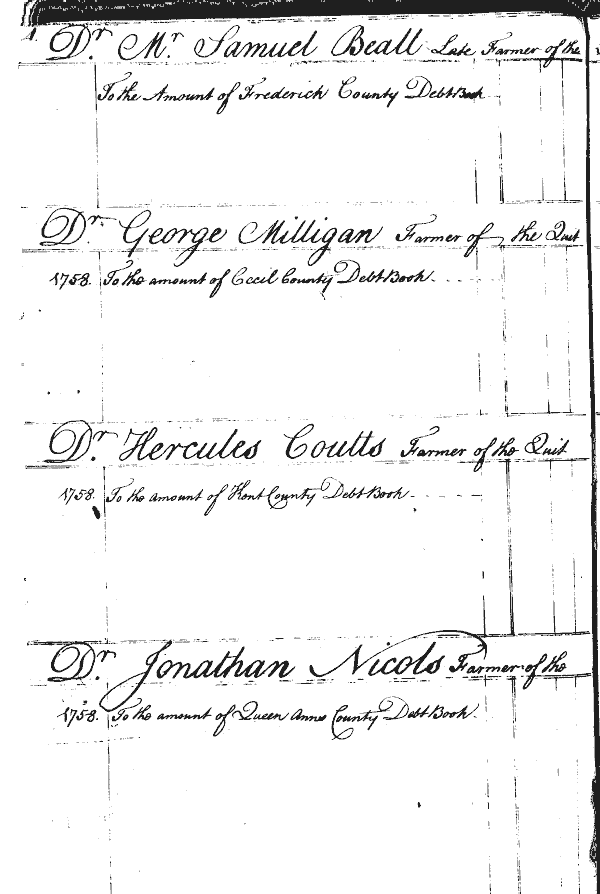 1. Dr. Mr. Samuel Beall Late Farmer of the
To the Amount of Frederick County Debt Book
Dr. George Milligan Farmer of the Quit
1758. To the amount of Cecil County Debt Book
Dr. Hercules Coutts Farmer of the Quit
1758. To the amount of Kent County Debt Book
Dr. Jonathan Nicols Farmer of the
1758. To the amount of Queen Annes County Debt Book